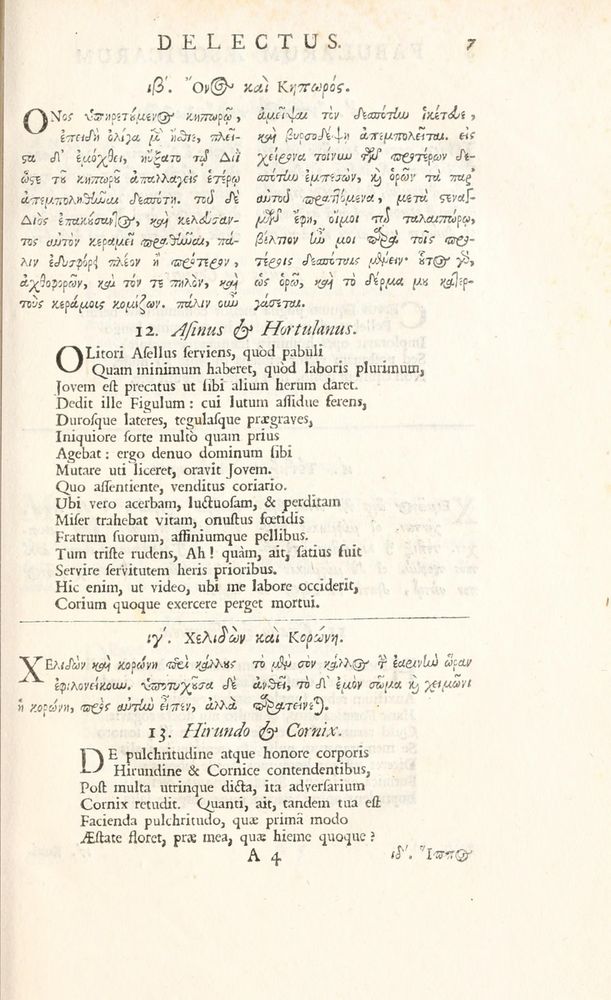 DELECTUS. 7
ιβʹ. Ὄνος καὶ Κηπωρός.
ΟΝος ὑπηρετούμενος κηπωρῷ,
ἐπειδὴ ὀλίγα μὲν ἤσθιε, πλεῖ-
στα δ' ἐμόχθει, ηὔξατο τῷ Διῒ
ὥστε τοῦ κηπωροῦ ἀπαλλαγεὶς ἑτέρῳ
ἀπεμποληθῆναι δεσπότῃ. τοῦ δὲ
Διὸς ἐπακούσαντος, καὶ κελεύσαν-
τος αὐτὸν κεραμεῖ πραθῆναι, πά-
λιν ἐδυσφόρει πλέον ἢ πρότερον,
ἀχθοφορῶν, καὶ τόν τε πηλὸν, καὶ
τοὺς κεράμους κομίζων. πάλιν οὖν
ἀμεῖψαι τὸν δεσπότην ἱκέτευε,
καὶ βυρσοδέψῃ ἀπεμπολεῖται. εἰς
χείρονα τοίνυν τῶν προτέρων δε-
σπότην ἐμπεσὼν, καὶ ὁρῶν τὰ παρ'
αὐτοῦ πραττόμενα, μετὰ στεναγ-
μῶν ἔφη, οἴμοι τῷ ταλαιπώρῳ,
βέλτιον ἦν μοι παρὰ τοῖς προ-
τέροις δεσπόταις μένειν· οὗτος γὰρ,
ὡς ὁρῶ, καὶ τὸ δέρμα μου κατερ-
γάσεται.
12. Asinus & Hortulanus.
OLitori Asellus serviens, quòd pabuli
Quam minimum haberet, quòd laboris plurimum,
Jovem est precatus ut sibi alium herum daret.
Dedit ille Figulum: cui lutum assidue ferens,
Durosque lateres, tegulasque prægraves,
Iniquiore sorte multò quam prius
Agebat: ergo denuo dominum sibi
Mutare uti liceret, oravit Jovem.
Quo assentiente, venditus coriario.
Ubi vero acerbam, luctuosam, & perditam
Miser trahebat vitam, onustus fœtidis
Fratrum suorum, affiniumque pellibus.
Tum triste rudens, Ah! quàm, ait, satius fuit
Servire servitutem heris prioribus.
Hic enim, ut video, ubi me labore occiderit,
Corium quoque exercere perget mortui.
ιγʹ. Χελιδὼν καὶ Κορώνη.
ΧΕλιδὼν καὶ κορώνη περὶ κάλλους
ἐφιλονείκουν. ὑποτυχοῦσα δὲ
ἡ κορώνη, πρὸς αὐτὴν εἶπεν, ἀλλὰ
τὸ μὲν σὸν κάλλος τὴν ἐαρινὴν ὥραν
ἀνθεῖ, τὸ δ' ἐμὸν σῶμα καὶ χειμῶνι
παρατείνεται.
13. Hirundo & Cornix.
DE pulchritudine atque honore corporis
Hirundine & Cornice contendentibus,
Post multa utrinque dicta, ita adversarium
Cornix retudit. Quanti, ait, tandem tua est
Facienda pulchritudo, quæ primâ modo
Æstate floret, præ mea, quæ hieme quoque?
A 4 ιδʹ. Ἵππος